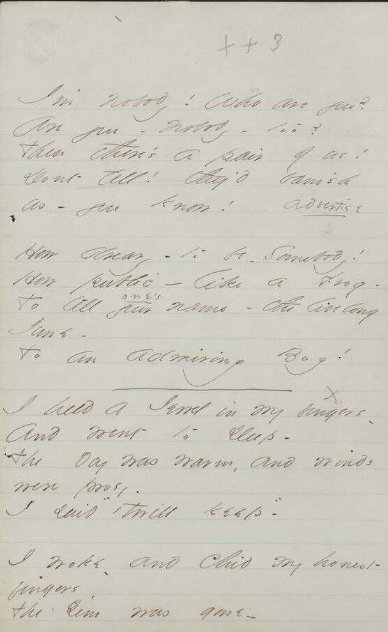 + + 3
I'm nobody! Who are you?
Are you - nobody - too?
Then there's a pair of us!
Dont tell! they'd banish
us - you know! advertise
How dreary - to be - Somebody!
How public - like a Frog -
one's
To tell your name - the livelong
June -
To an admiring Bog!
I held a Jewel in my fingers -
And went to sleep -
The day was warm, and winds
were prosy -
I said "'Twill keep" -
I woke - and chid my honest
fingers,
The Gem was gone -